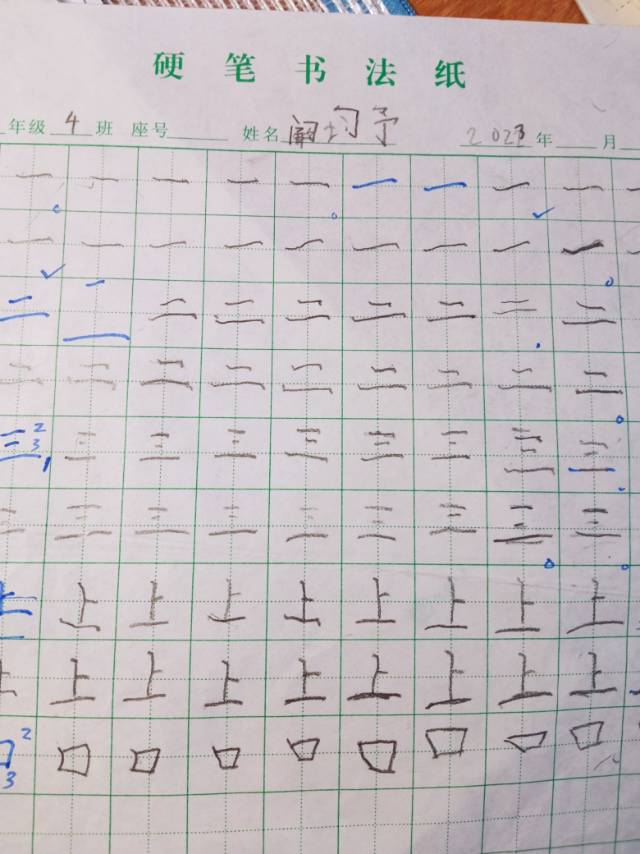 硬笔书法纸
年级 4 班 座号 姓名 阚均予 2023 年 月
一 一 一 一 一 一 一 一 一 一
一 一 一 一 一 一 一 一 一 一
二 二 二 二 二 二 二 二 二
二 二 二 二 二 二 二 二 二
三 2 3 三 三 三 三 三 三 三 三
三 三 三 三 三 三 三 三 三
上 上 上 上 上 上 上 上 上
上 上 上 上 上 上 上 上 上
口 2 3 口 口 口 口 口 口 口 口